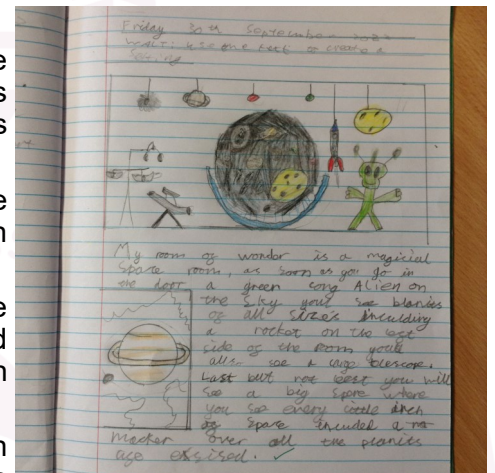 Friday 30th September 202
WALT: use one text to create a
setting
My room of wonder is a magicial
Space room, as soon as you go in
the door a green song Alien on
the sky your see blanies
of all sizes inculding
a rocket on the
side of the room you'd
alls see a large telescope.
Last but not least you will
See a big spere where
you see every little inch
of space incuded a
macker over all the planies
age exsised.